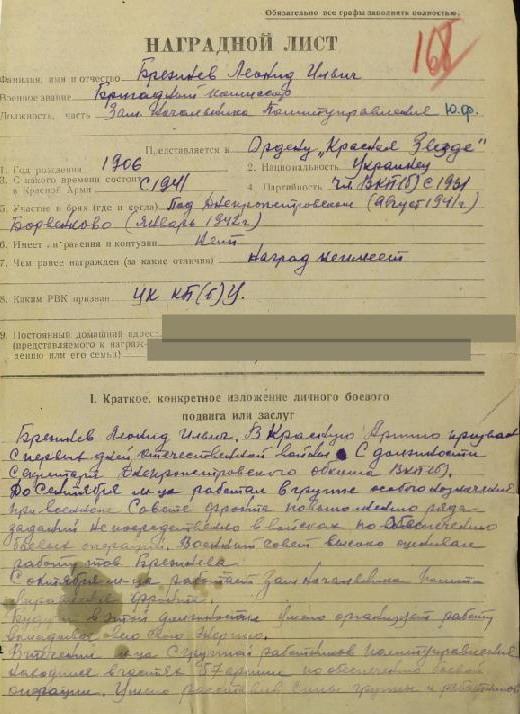 Обязательно все графы заполнять полностью.
168
НАГРАДНОЙ ЛИСТ
Фамилия, имя и отчество Брежнев Леонид Ильич
Военное звание Бригадный комиссар
Должность, часть Зам. Начальника Политуправления Ю.Ф.
Представляется к Ордену „Красная Звезда"
1. Год рождения 1906 2. Национальность Украинец
3. С какого времени состоит в Красной Армии С 1941 4. Партийность чл. ВКП(б) С 1931
5. Участие в боях (где и когда) Под Днепропетровском (август 1941 г.)
Борвенково (январь 1942 г.)
6. Имеет ли ранения и контузии Нет
7. Чем ранее награжден (за какие отличия) Наград не имеет
8. Каким РВК призван ЦК КП(б)У.
9. Постоянный домашний адрес:
(представляемого к награж-
дению или его семьи)
I. Краткое, конкретное изложение личного боевого
подвига или заслуг
Брежнев Леонид Ильич. В Красную Армию призван
с первых дней отечественной войны с должности
Секретаря Днепропетровского обкома ВКП(б).
До сентября м-ца работал в группе особого назначения
при военном Совете фронта по выполнению ряда
заданий непосредственно в войсках по обеспечению
боевых операций. Военный Совет высоко оценивал
работу тов Брежнева
С октября м-ца работает Зам. Начальника Полит-
управления фронта.
в этой должности умело организует работу
свою энергию.
В течении м-ца с группой работников политуправления
находился в частях 57 армии по обеспечению боевой
операции. Умело расставив силы группы и работников